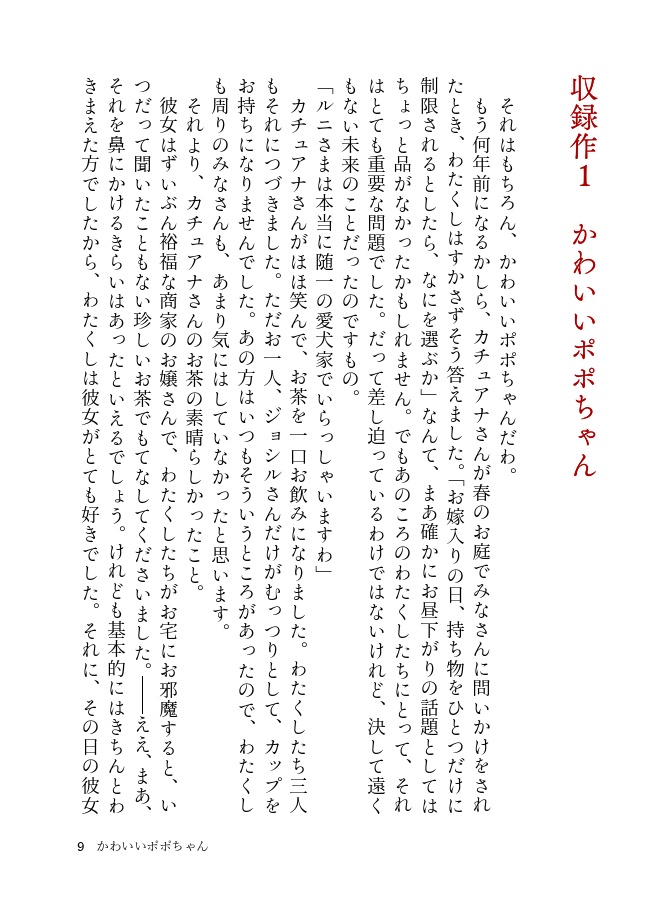 収録作1　かわいいポポちゃん
　それはもちろん、かわいいポポちゃんだわ。
　もう何年前になるかしら、カチュアナさんが春のお庭でみなさんに問いかけをされ
たとき、わたくしはすかさずそう答えました。「お嫁入りの日、持ち物をひとつだけに
制限されるとしたら、なにを選ぶか」なんて、まあ確かにお昼下がりの話題としては
ちょっと品がなかったかもしれません。でもあのころのわたくしたちにとって、それ
はとても重要な問題でした。だって差し迫っているわけではないけれど、決して遠く
もない未来のことだったのですもの。
「ルニさまは本当に随一の愛犬家でいらっしゃいますわ」
　カチュアナさんがほほ笑んで、お茶を一口お飲みになりました。わたくしたち三人
もそれにつづきました。ただお一人、ジョシルさんだけがむっつりとして、カップを
お持ちになりませんでした。あの方はいつもそういうところがあったので、わたくし
も周りのみなさんも、あまり気にはしていなかったと思います。
　それより、カチュアナさんのお茶の素晴らしかったこと。
　彼女はずいぶん裕福な商家のお嬢さんで、わたくしたちがお宅にお邪魔すると、い
つだって聞いたこともない珍しいお茶でもてなしてくださいました。――ええ、まあ、
それを鼻にかけるきらいはあったといえるでしょう。けれども基本的にはきちんとわ
きまえた方でしたから、わたくしは彼女がとても好きでした。それに、その日の彼女
9　かわいいポポちゃん